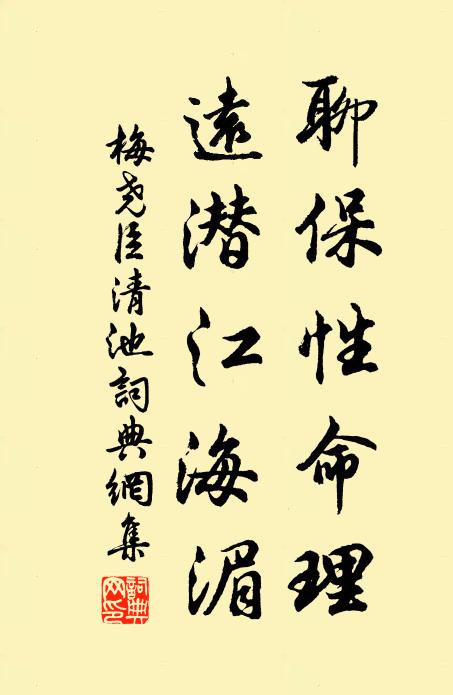 聊保性命理
遠潛江海湄
梅堯臣清池詞典網集
詞典網印